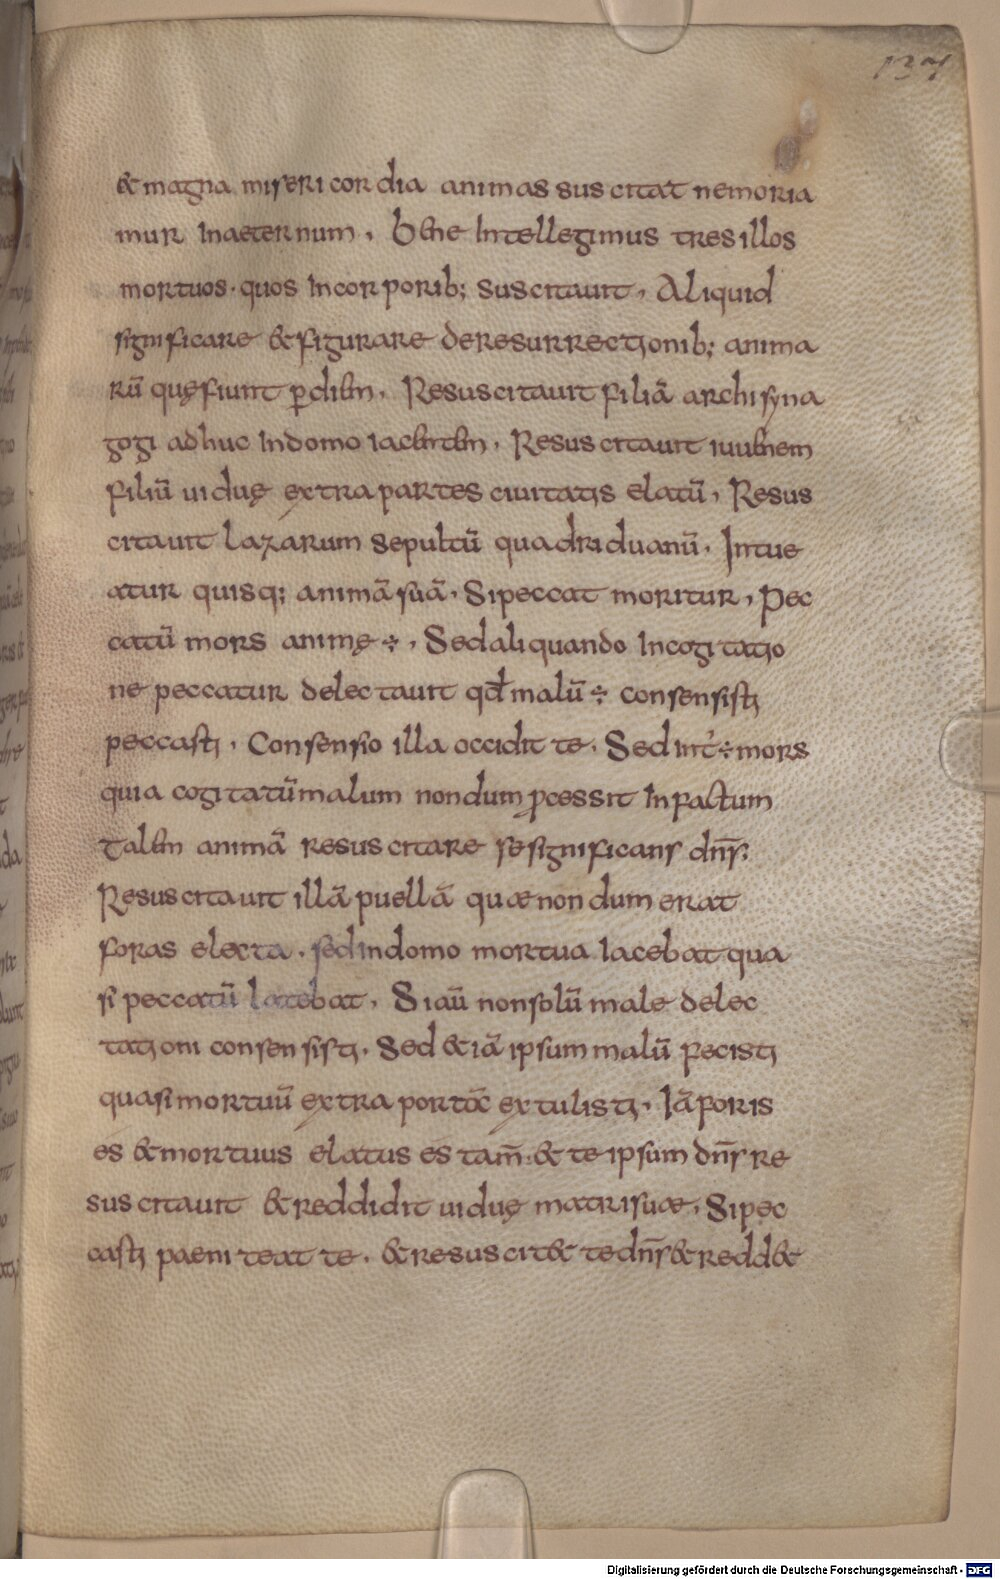 137
& magna misericordia animas suscitat nemoria
mur inaeternum. Bene intellegimus tres illos
mortuos. quos incorporib; suscitauit, Aliquid
significare & figurare deresurrectionib; anima
rū quę fiunt ꝑ diem. Resuscitauit filiā archisyna
gogi adhuc indomo iacentem. Resuscitauit iuuenem
filiū uiduę extra partes ciuitatis elatū, Resus
citauit lazarum sepultū quadriduanū. Intue
atur quisq; animā suā. Si peccat moritur, Pec
catū mors animę ÷, Sed aliquando incogitatio
ne peccatur delectauit qđ malū ÷ consensisti
peccasti, Consensio illa occidit te. Sed int' ÷ mors
quia cogitatū malum nondum ꝓcessit infactum
Talem animā resuscitare se significans dn̄s;
Resuscitauit illā puellā quae nondum erat
foras electa. sed indomo mortua iacebat qua
si peccatū latebat. Si aū non solū male delec
tationi consensisti. Sed & iā ipsum malū fecisti
quasi mortuū extra portā extulisti. Iā foris
es & mortuus elatus es tam̄. & te ipsum dn̄s re
suscitauit & reddidit uiduę matri suae, Si pec
casti paeniteat te. & resuscit& te dn̄s & redd&
Digitalisierung gefördert durch die Deutsche Forschungsgemeinschaft - DFG